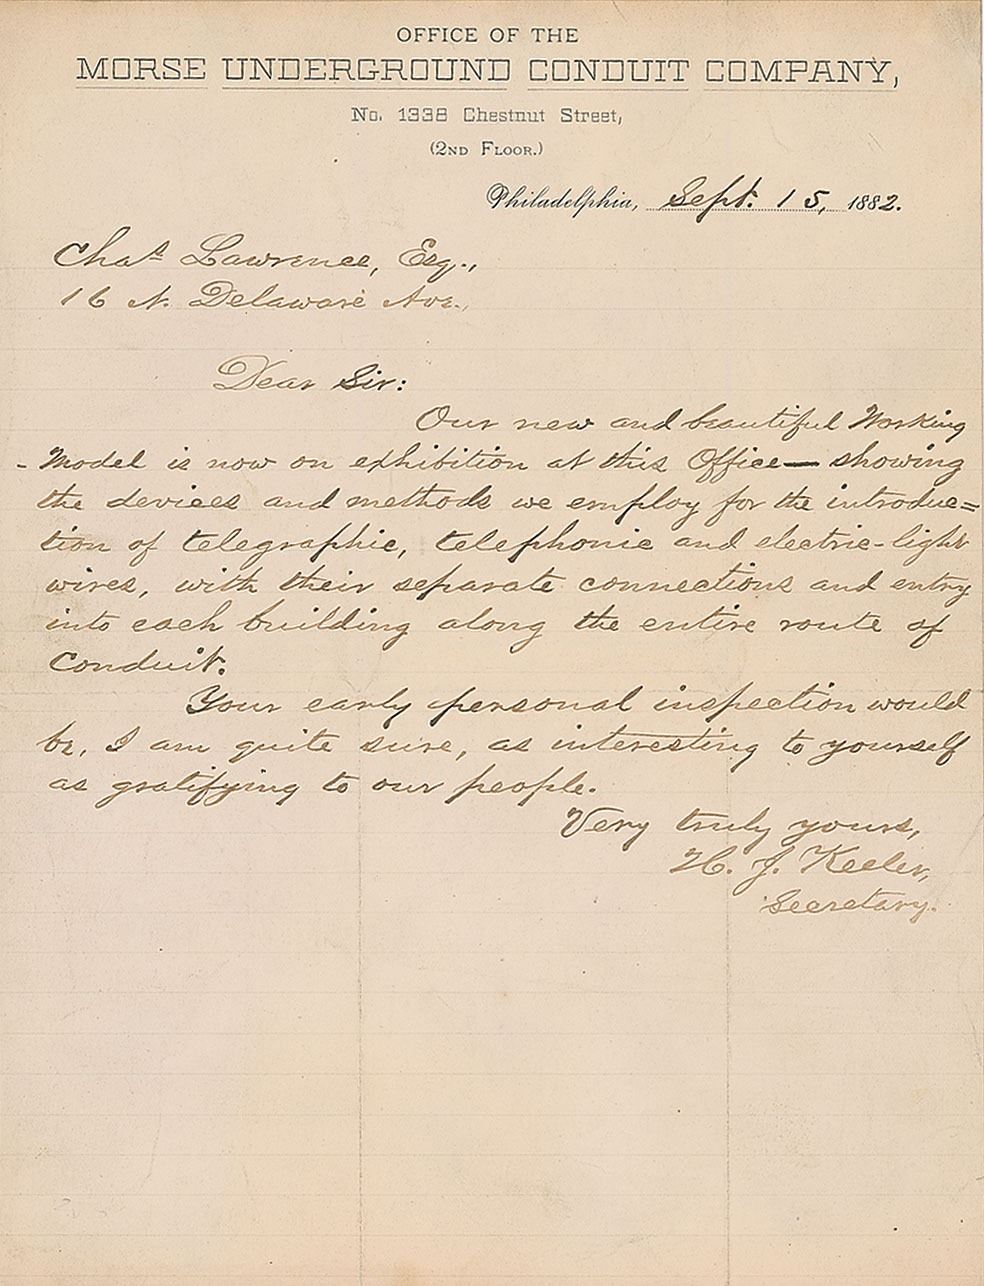 OFFICE OF THE
MORSE UNDERGROUND CONDUIT COMPANY,
No. 1338 Chestnut Street,
(2ND FLOOR.)
Philadelphia, Sept. 15, 1882.
Chas Lawrence, Esq.,
16 N. Delaware Ave.,
Dear Sir:
Our new and beautiful Working
-Model is now on exhibition at this Office— showing
the devices and methods we employ for the introduc=
tion of telegraphic, telephonic and electric-light
wires, with their separate connections and entry
into each building along the entire route of
Conduit.
Your early personal inspection would
be, I am quite sure, as interesting to yourself
as gratifying to our people.
Very truly yours,
H. J. Keeler,
Secretary.